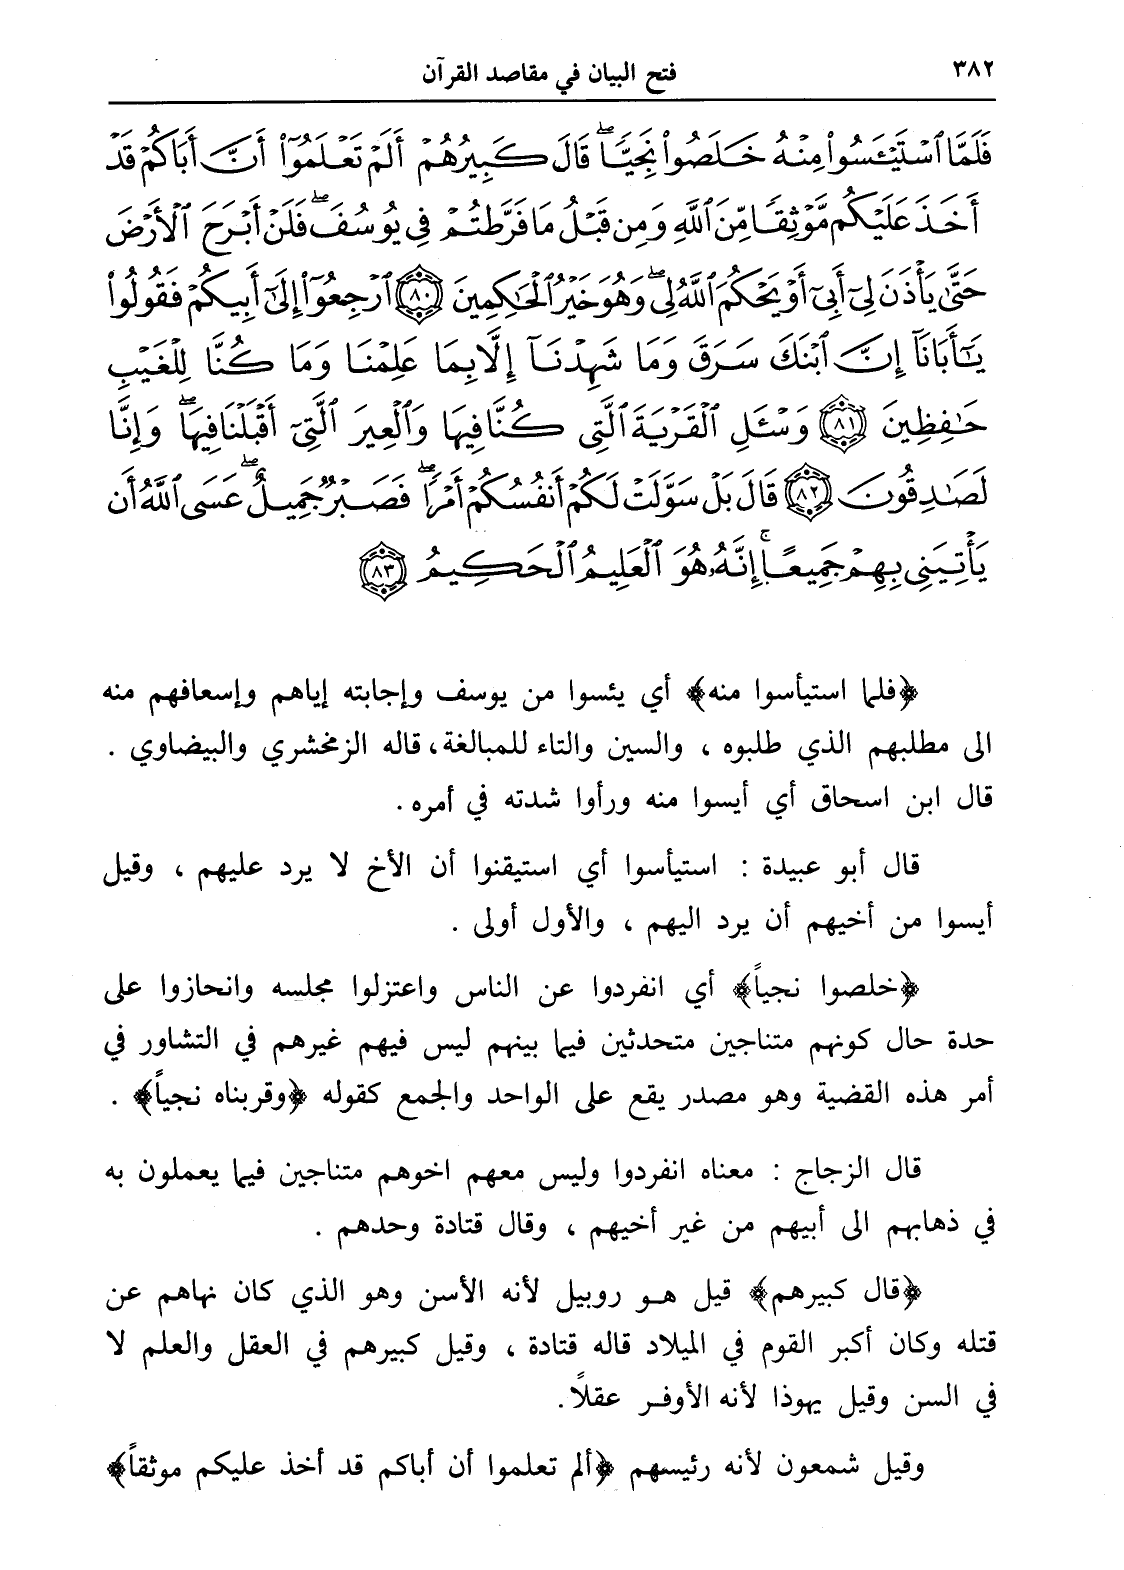 ٣٨٢ فتح البيان في مقاصد القرآن
فَلَمَّا ٱسۡتَيۡـَٔسُواْ مِنۡهُ خَلَصُواْ نَجِيّٗاۖ قَالَ كَبِيرُهُمۡ أَلَمۡ تَعۡلَمُوٓاْ أَنَّ أَبَاكُمۡ قَدۡ
أَخَذَ عَلَيۡكُم مَّوۡثِقٗا مِّنَ ٱللَّهِ وَمِن قَبۡلُ مَا فَرَّطتُمۡ فِي يُوسُفَۖ فَلَنۡ أَبۡرَحَ ٱلۡأَرۡضَ
حَتَّىٰ يَأۡذَنَ لِيٓ أَبِيٓ أَوۡ يَحۡكُمَ ٱللَّهُ لِيۖ وَهُوَ خَيۡرُ ٱلۡحَٰكِمِينَ ٨٠ ٱرۡجِعُوٓاْ إِلَىٰٓ أَبِيكُمۡ فَقُولُواْ
يَٰٓأَبَانَآ إِنَّ ٱبۡنَكَ سَرَقَ وَمَا شَهِدۡنَآ إِلَّا بِمَا عَلِمۡنَا وَمَا كُنَّا لِلۡغَيۡبِ
حَٰفِظِينَ ٨١ وَسۡـَٔلِ ٱلۡقَرۡيَةَ ٱلَّتِي كُنَّا فِيهَا وَٱلۡعِيرَ ٱلَّتِيٓ أَقۡبَلۡنَا فِيهَاۖ وَإِنَّا
لَصَٰدِقُونَ ٨٢ قَالَ بَلۡ سَوَّلَتۡ لَكُمۡ أَنفُسُكُمۡ أَمۡرٗاۖ فَصَبۡرٞ جَمِيلٌۖ عَسَى ٱللَّهُ أَن
يَأۡتِيَنِي بِهِمۡ جَمِيعًاۚ إِنَّهُۥ هُوَ ٱلۡعَلِيمُ ٱلۡحَكِيمُ ٨٣
﴿فلما استيأسوا منه﴾ أي يئسوا من يوسف وإجابته إياهم وإسعافهم منه
الى مطلبهم الذي طلبوه ، والسين والتاء للمبالغة، قاله الزمخشري والبيضاوي .
قال ابن اسحاق أي أيسوا منه ورأوا شدته في أمره.
قال أبو عبيدة : استيأسوا أي استيقنوا أن الأخ لا يرد عليهم ، وقيل
أيسوا من أخيهم أن يرد اليهم ، والأول أولى .
﴿خلصوا نجياً﴾ أي انفردوا عن الناس واعتزلوا مجلسه وانحازوا على
حدة حال كونهم متناجين متحدثين فيما بينهم ليس فيهم غيرهم في التشاور في
أمر هذه القضية وهو مصدر يقع على الواحد والجمع كقوله ﴿وقربناه نجياً﴾ .
قال الزجاج : معناه انفردوا وليس معهم اخوهم متناجين فيما يعملون به
في ذهابهم الى أبيهم من غير أخيهم ، وقال قتادة وحدهم .
﴿قال كبيرهم﴾ قيل هو روبيل لأنه الأسن وهو الذي كان نهاهم عن
قتله وكان أكبر القوم في الميلاد قاله قتادة ، وقيل كبيرهم في العقل والعلم لا
في السن وقيل يهوذا لأنه الأوفر عقلاً.
وقيل شمعون لأنه رئيسهم ﴿ألم تعلموا أن أباكم قد أخذ عليكم موثقاً﴾